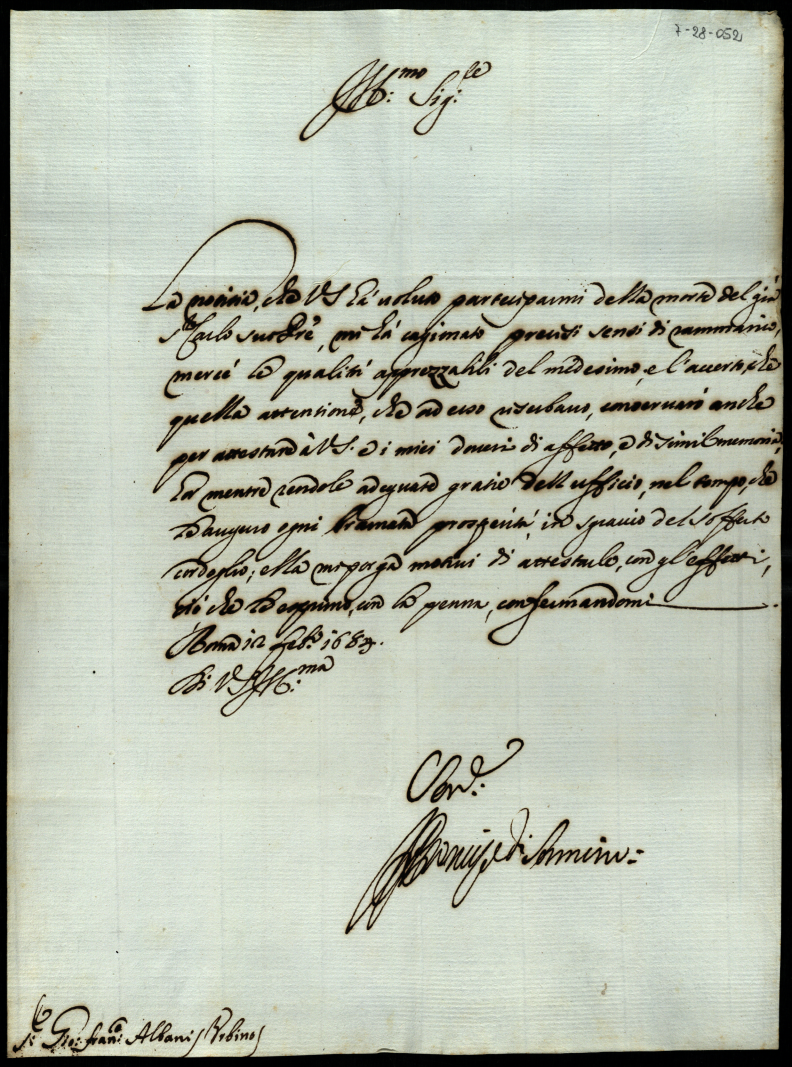 7-28-052
Ill:mo Sig:re
La notitia, che VS há voluto parteciparmi della morte del già
Sr Carlo suo Pre, mi há cagionato precisi sensi di rammarico,
mercé le qualità apprezzabili del medesimo, e l'accerto, che
quella attentione, che ad esso riserbavo, conservaró anche
per attestare à VS. e i miei doveri di affetto, e di simil memoria,
Et mentre rendole adeguate gratie dell'ufficio, nel tempo, che
le auguro ogni bramata prosperità, in del sofferto
cordoglio; ella mi porga motivi di attestarle, con gl'effetti,
ció che le esprimo, con la penna, confermandomi
Roma 12 Feb:o 1684.
Di VS Ill:ma
Ser:
Il di
Sr Gio: Fran:co Albani Urbino